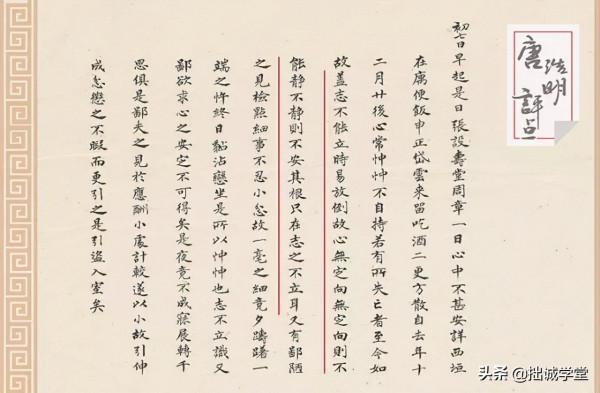 唐浩明
評点
初七日早起是日張設壽堂周章一日心中不甚安詳西垣
在寓便飯申正岱雲來留吃酒二更方散自去年十
二月廿後心常忡忡不自持若有所失亡者至今如
故蓋志不能立時易放倒故心無定向無定向則不
能靜不靜則不安其根只在志之不立耳又有鄙陋
之見檢點細事不忍小忿故一毫之細竟夕躊躇一
端之忤終日黏沾戀坐是所以忡忡也志不立識又
鄙欲求心之安定不可得矣是夜竟不成寐展轉千
思俱是鄙夫之見於應酬小處計較遂以小故引伸
成忿懲之不暇而更引之是引盜入室矣
头条 @拙诚学堂